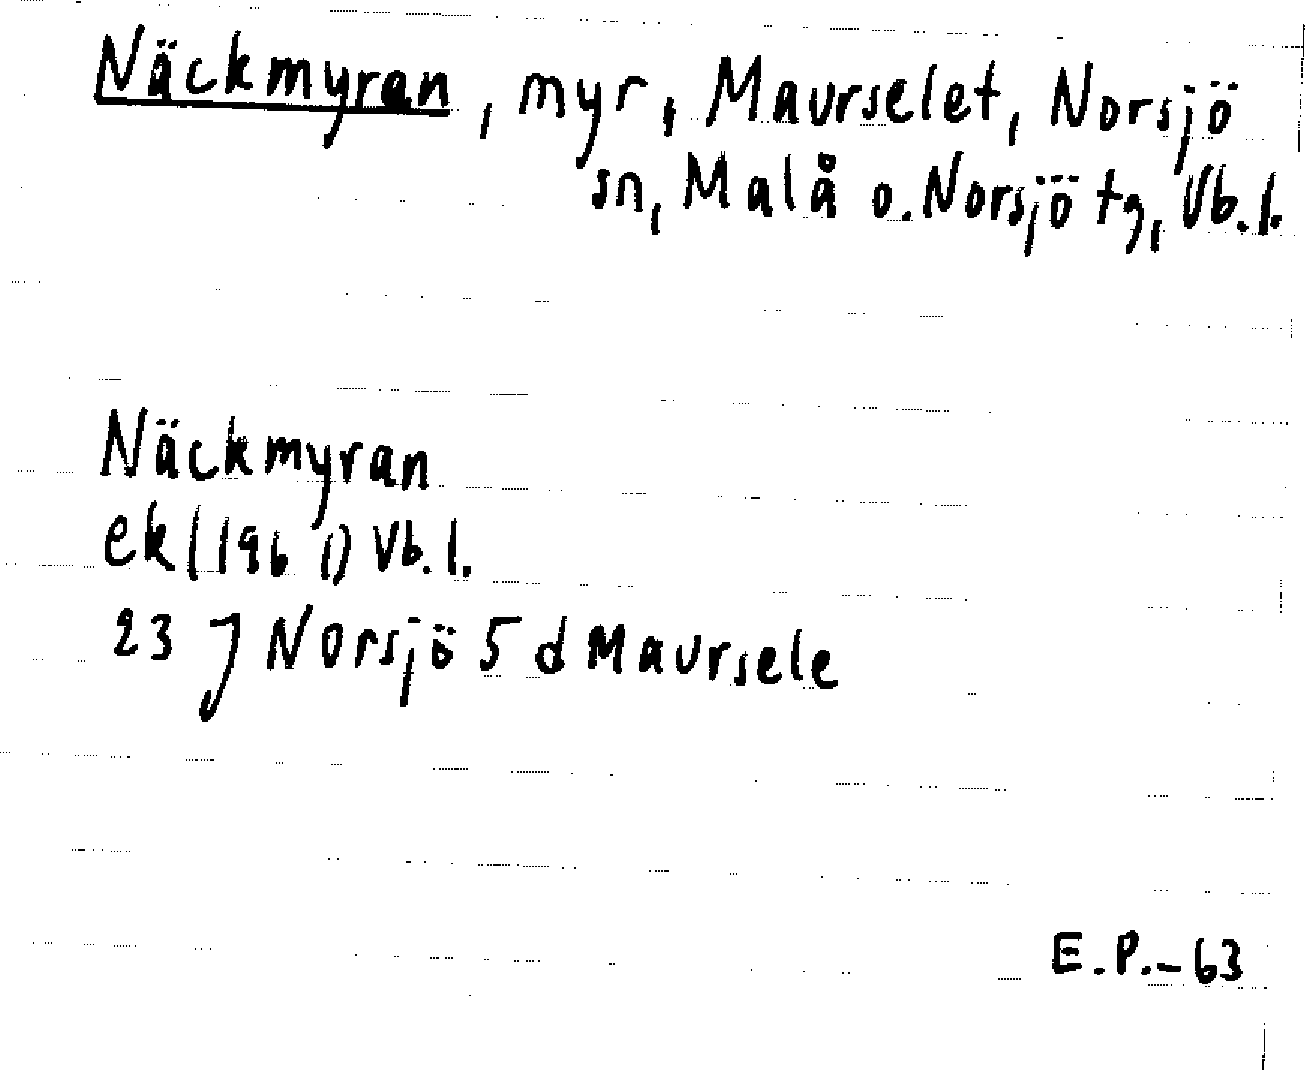 Näckmyran, myr, Maurselet, Norsjö
sn, Malå o. Norsjö tg, Vb. l.
Näckmyran
ek (1961) Vb. l.
23 J Norsjö 5 d Maursele
E.P.-63